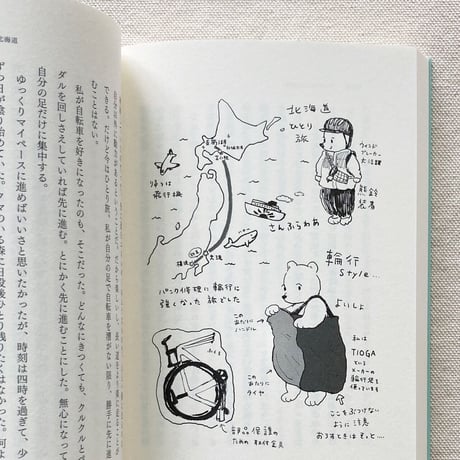 北海道
自分の足だけに集中する。
ゆっくりマイペースに進めばいいさと思いたかったが、時刻は四時を過ぎて、少
ダルを回しさえしていれば先に進む。とにかく先に進むことにした。無心になって
私が自転車を好きになったのも、そこだった。どんなにきつくても、クルクルとペ
むことはない。
できる。だけど今はひとり旅。私が自分で自転車を漕がない限り、勝手に先に進
北海道
ひとり
旅
熊鈴
装着
帰りは
飛行機
さんふらわあ
大洗
パンク修理に輪行に
強くなった旅でした
輪行
style…
よいしょ
このあたりに
ハンドル
このあたりに
タイヤ
私は
TIOGA
という
メーカーの
輪行袋を
使っています
ここをぶつけない
ように注意
おろすときはそっと…
部品保護の
ための